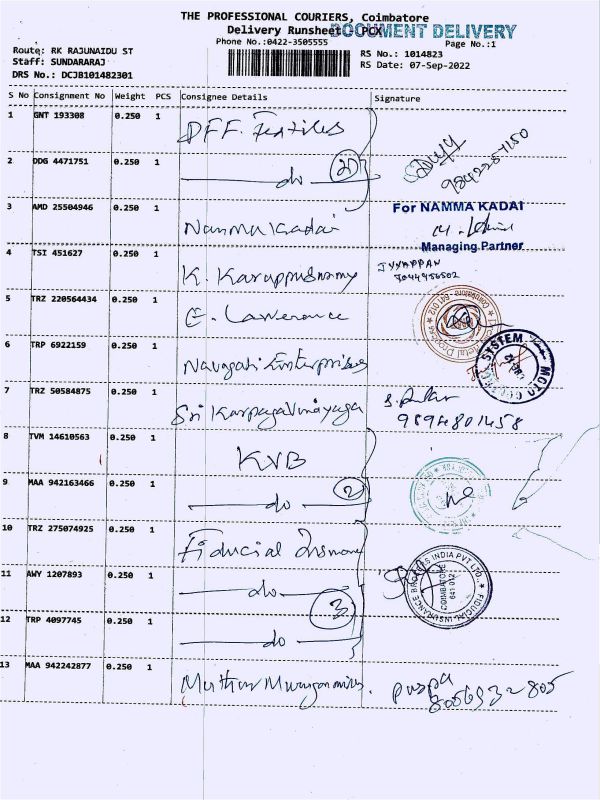 THE PROFESSIONAL COURIERS, Coimbatore
Delivery Runsheet - PCX
DOCUMENT DELIVERY
Phone No.:0422-3505555
Page No.:1
Route: RK RAJUNAIDU ST
RS No.: 1014823
Staff: SUNDARARAJ
RS Date: 07-Sep-2022
DRS No.: DCJB101482301
S No Consignment No Weight PCS Consignee Details Signature
1 GNT 193308 0.250 1 DFF. Textiles
2 DDG 4471751 0.250 1 do 2
3 AMD 25504946 0.250 1 Namma Kadai
For NAMMA KADAI
Managing Partner
4 TSI 451627 0.250 1 K. Karuppuswamy
IYYAPPAN
5 TRZ 220564434 0.250 1 E. Lawerance
6 TRP 6922159 0.250 1 Navagati Enterprises
SYSTEM
7 TRZ 50584875 0.250 1 Sri Karpagavinayaga
9894801458
8 TVM 14610563 0.250 1 KVB
9 MAA 942163466 0.250 1 do 2
10 TRZ 275074925 0.250 1 Fiducial Insurance
11 AWY 1207893 0.250 1 do
3
FIDUCIAL INSURANCE BROKERS INDIA PVT LTD.,
COIMBATORE
641 012
12 TRP 4097745 0.250 1 do
13 MAA 942242877 0.250 1
puspa
8056932805